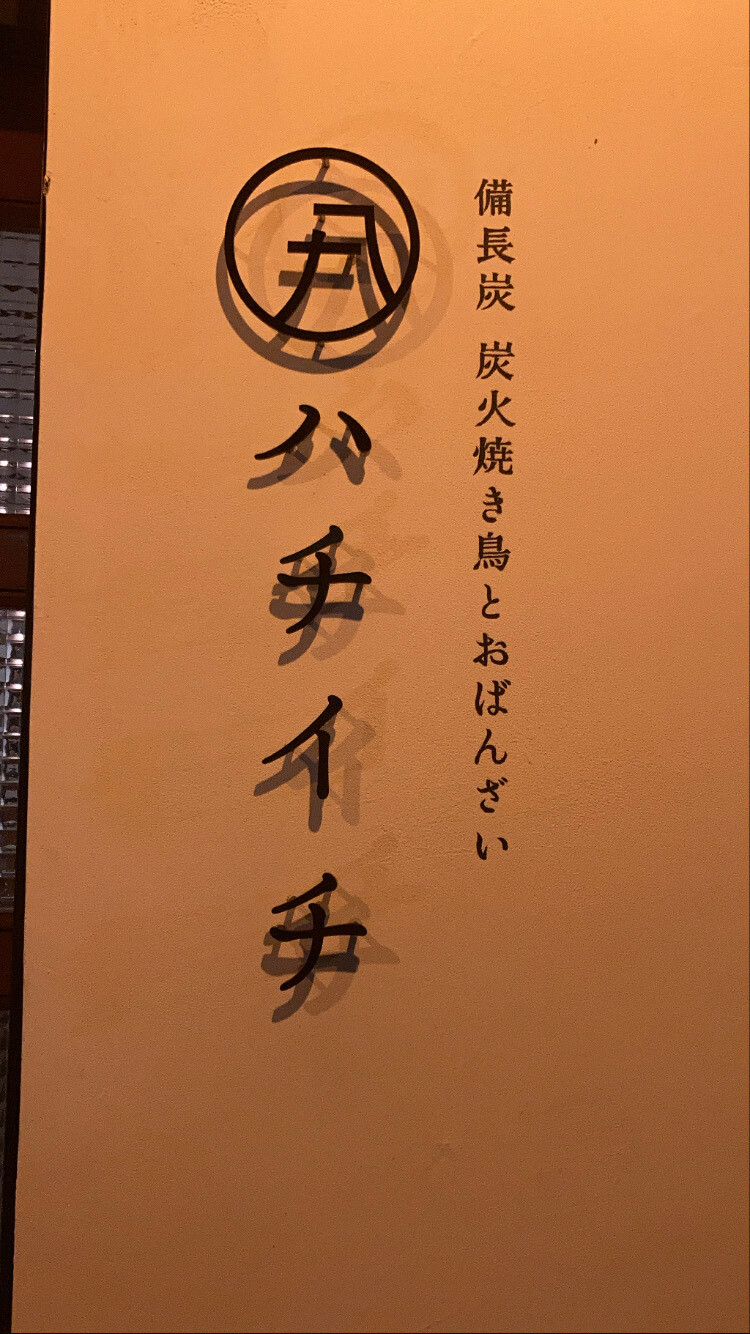 備長炭 炭火焼き鳥とおばんざい
ハチイチ